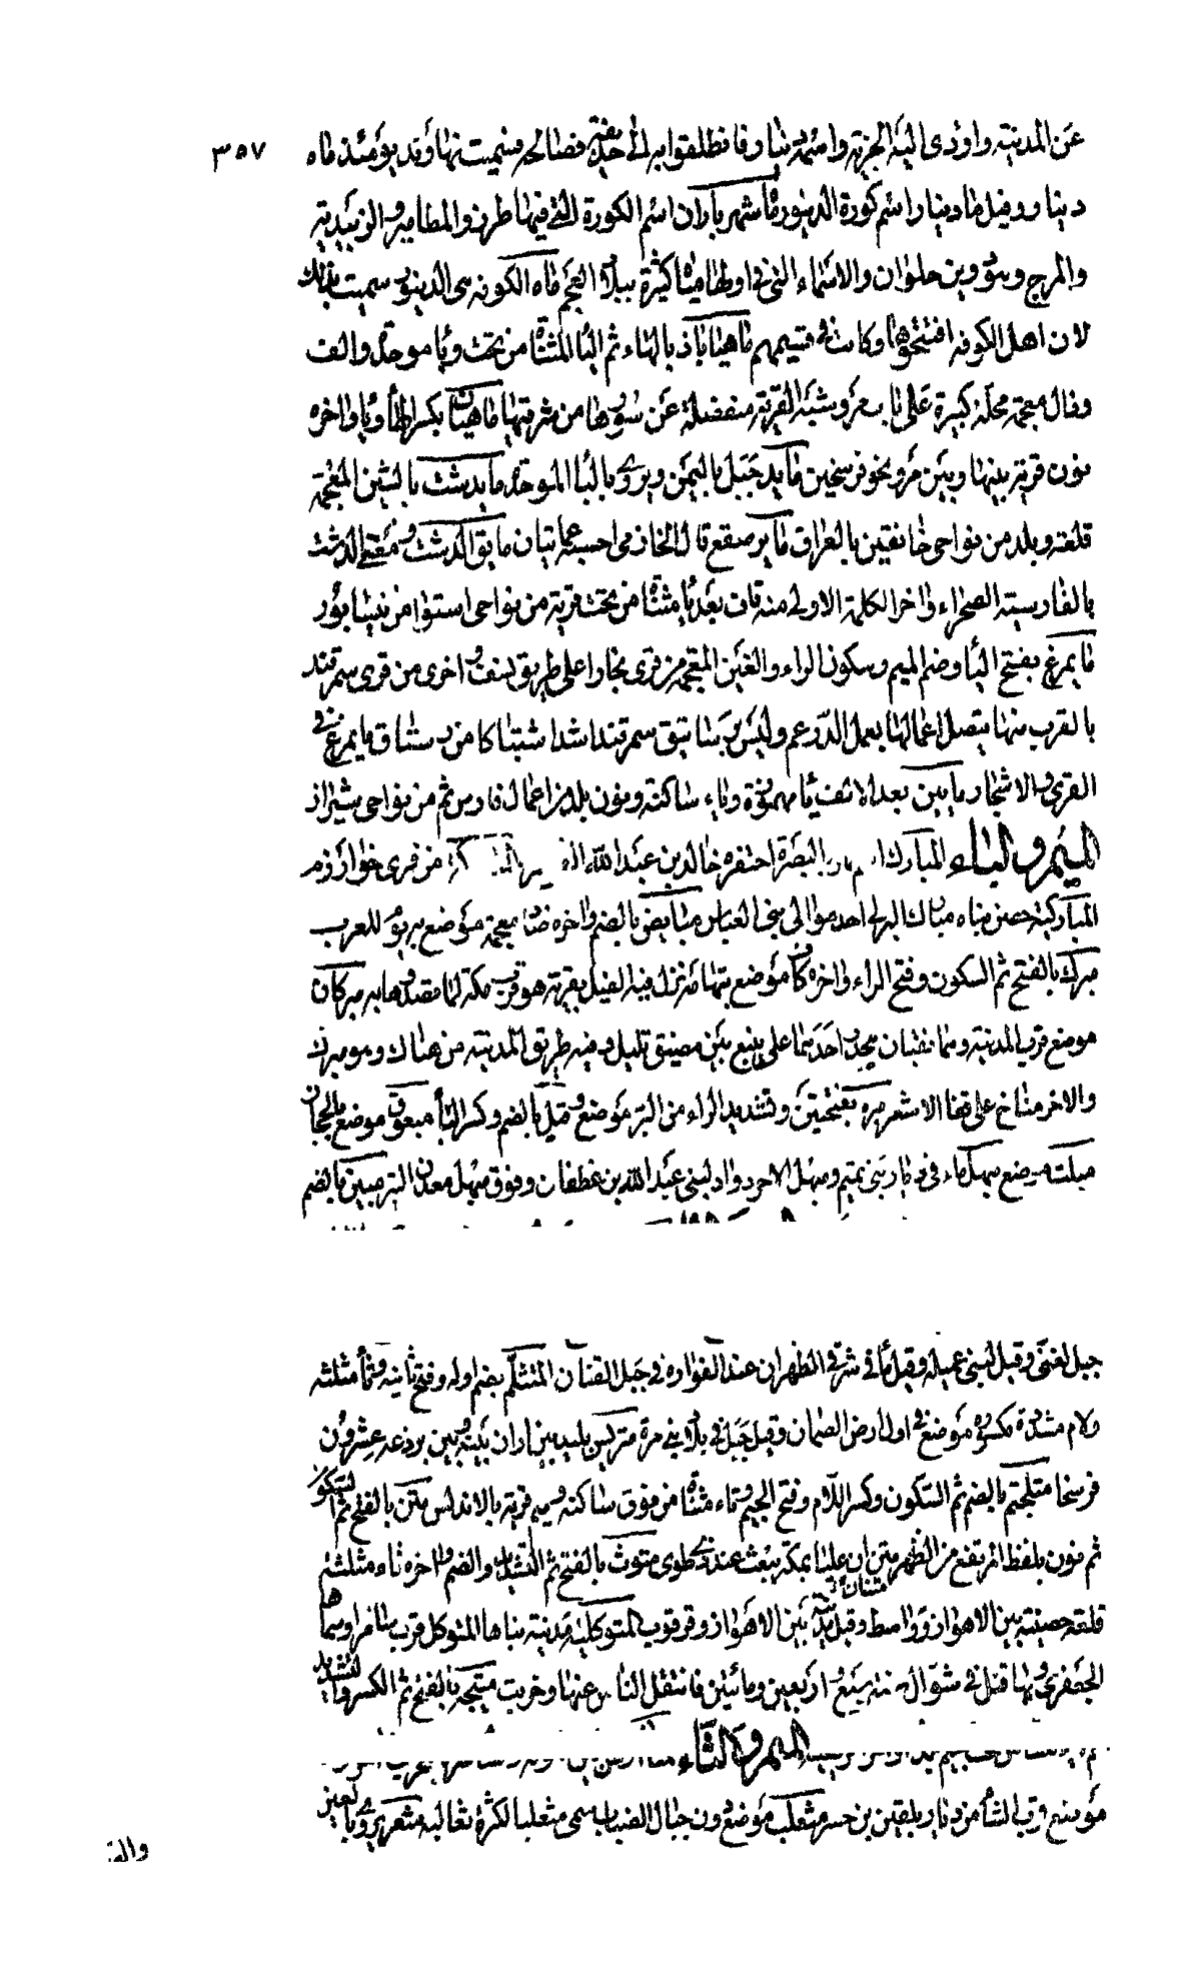 ٣٥٧
عن المدينة واؤدى اليه الجزية واسمه دينار فانطلقوا به الى حذيفة فصالحه فسميت نهاوند يومئذ ماه
دينار وقيل ماه دينار اسم كورة الدينور ماه شهرياران اسم الكورة التى فيها طرز والمطامير والزبيدية
والمرج وهو دون حلوان والاسماء التى فى اولها ماه كثيرة ببلاد العجم ماه الكوفه هى الدينور سميت بذلك
لان اهل الكوفه افتتحوها وكانت فى قسمهم ماهياباذ بالهاء ثم اليا المثناة من تحت وبا موحدة والف
وذال معجمة محلة كبيرة على باب مرو شبه القرية منفصلة عن سورها من شرقيها ماهيان بكسر الها ويا واخره
نون قرية بينها وبين مرو نحو فرسخين مايد جبل باليمن ويروى بالبا الموحدة مايدشت بالشين المعجمة
قلعة وبلد من نواحى خانقين بالعراق ماير صقع قال الحازمى احسبه عمانيا مايق الدشت ومعنى الدشت
بالفارسية الصحراء واخر الكلمة الاولى منه قاف بعد يا مثناة من تحت قرية من نواحى استوا من نيسابور
مايمرغ بفتح اليا وضم الميم وسكون الراء والغين المعجمة من قرى بخارا على طريق نسف واخرى من قرى سمرقند
بالقرب منها يتصل اعمالها بعمل الدرغم وليس برساتيق سمرقند اشد اشتباكا من رستاق مايمرغ فى
القرى والاشجار مايين بعد الالف يا مهموزة وياء ساكنة ونون بلد من اعمال فارس ثم من نواحى شيراز
الميم والباء المبارك نهر بالبصرة احتفره خالد بن عبد الله من قرى خوارزم
المباركية حصن بناه مبارك التركى احد موالى بنى العباس مبايض بالضم واخره ضاد معجمة موضع به يوم للعرب
مبرك بالفتح ثم السكون وفتح الراء واخره كاف موضع بتهامة نزل فيه الفيل بقربة هو قرب مكة لما مقصدها به مبركان
موضع قرب المدينة وهما نقبان ينحدر احدهما على ينبع بين مضيق يليل وفيه طريق المدينة من هناك وهو مبرك
والاخر مناخ على قفا الاشعر مبرة بفتحتين وتشديد الراء من البر موضع وقيل بالضم وكسر البا مبعوق موضع بالحجاز
مبلتة موضع مبهل ماء فى ديار بنى تميم ومبهل الاجرد واد لبنى عبد الله بن غطفان وفوق مبهل معدن البئر مبين بالضم
جبل لغنى وقيل لبنى عميلة وقيل ما فى شرقى الظهران عند الفوارة فى جبل القنان المتثلم بضم اوله وفتح ثانيه وثا مثلثة
ولام مشددة مكسورة موضع فى اول ارض الصمان وقيل جبل فى بلاد بنى مرة متريس بليد بين اران بينه وبين برذعه عشرون
فرسخا متلجتم بالضم ثم السكون وكسر اللام وفتح الجيم وتاء مثناة من فوق ساكنه وميم قرية بالاندلس متن بالفتح ثم السكون
ثم نون بلفظ ما ارتفع من الظهر متن ابن عليا بمكة ببعث عند ذى طوى متوث بالفتح ثم التشديد والضم واخره ثاء مثلثة
قلعة حصينة بين الاهواز وواسط وقيل مدينة بين الاهواز وقرقوب المتوكلية مدينة بناها المتوكل قرب سامرا وسماها
الجعفرى وبها قتل فى شوال سنة سبع واربعين ومائتين فانتقل الناس عنها وخربت متيجة بالفتح ثم الكسر والتشديد
الميم والثاء
موضع قرب الشأم من ديار بلقين بن جسر مثعلب موضع دون جبال الضباب سمى مثعلبا لكثرة ثعالبه مثعر ويروى بالعين